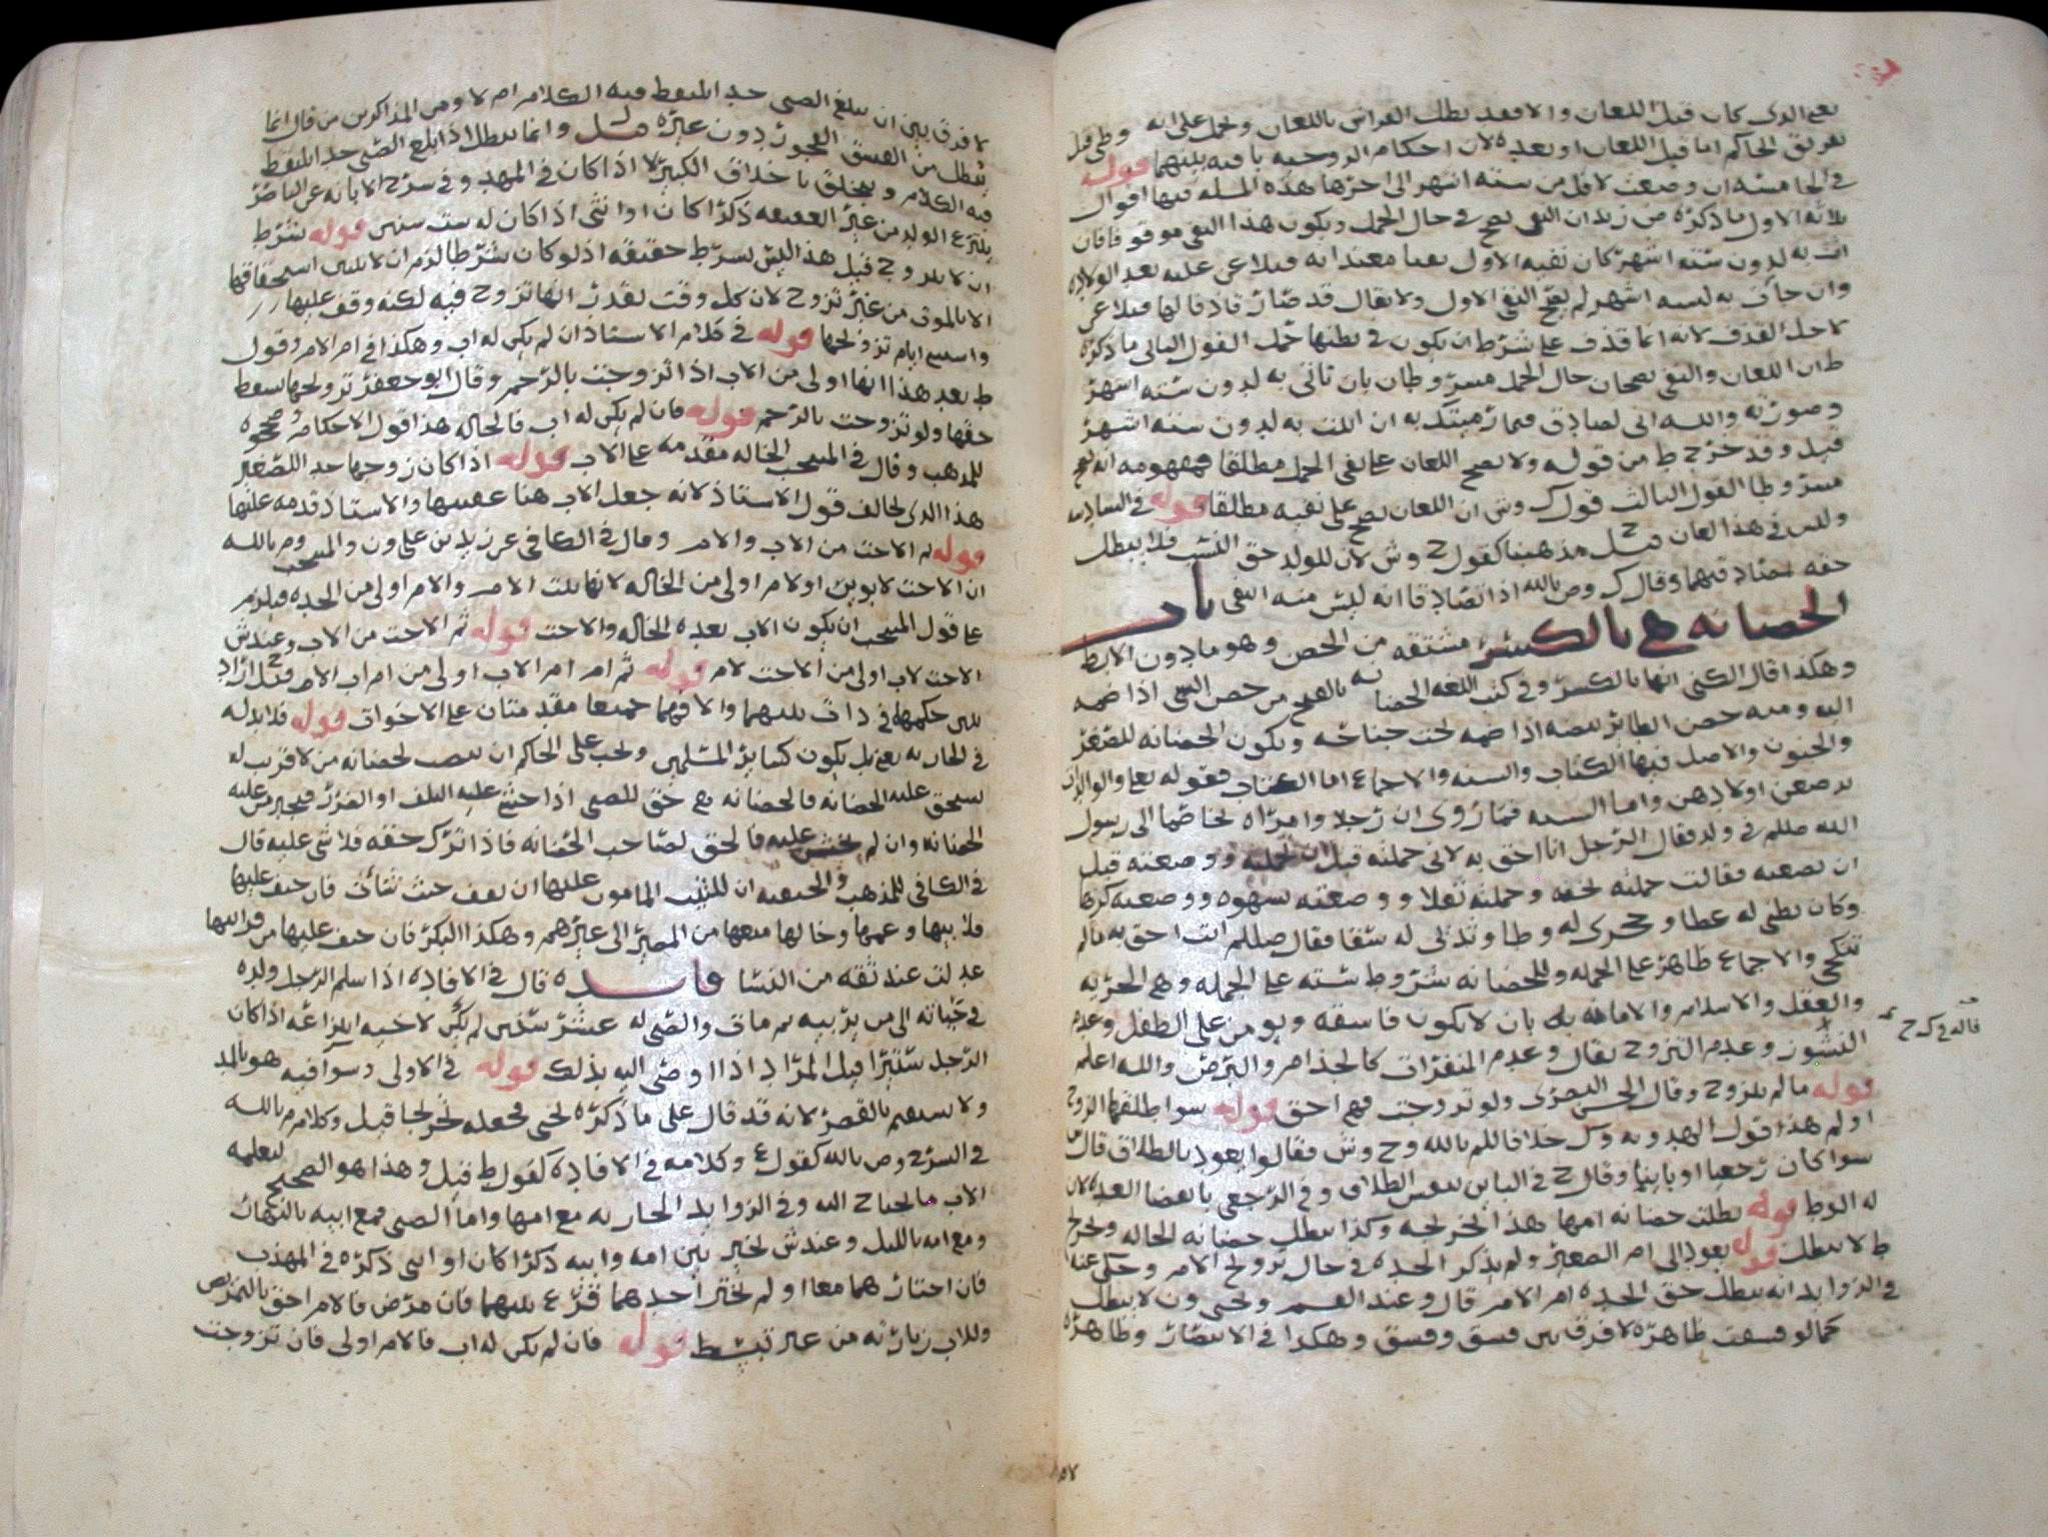 يعني الذي كان قبل اللعان والا فقد بطل الفراش باللعان ويحمل على انه وطي قبل
تفريق الحاكم اما قبل اللعان او بعده لان احكام الزوجيه باقيه بينهما قوله
في الخامسه ان وضعت لاقل من سته اشهر الى اخرها هذه المسله فيها اقوال
ثلاثه الاول ما ذكره ض زيد ان النفي يصح في حال الحمل ويكون هذا النفي موقوفا فان
اتت به لدون سته اشهر كان نفيه الاول نفيا معتدا به فيلاعن عليه بعد الولاده
وان جات به لسته اشهر لم يصح النفي الاول ولا يقال قد صار قاذفا لها فيلاعن
لاجل القذف لانه انما قذف على شرط ان يكون في بطنها حمل القول الثاني ما ذكره
ط ان اللعان والنفي يصحان حال الحمل مشروطان بان تاتي به لدون سته اشهر
وصورته والله اني لصادق فيما رميتك به ان اتيت به لدون سته اشهر
قيل وقد خرج ط من قوله ولا يصح اللعان على نفي الحمل مطلقا فمفهومه انه يصح
مشروطا القول الثالث قول ك وش ان اللعان يصح على نفيه مطلقا قوله في السادسه
وليس في هذا لعان قيل مذهبنا كقول ح وش لان للولد حق النسب فلا يبطل
حقه بتصادقهما وقال ك وص بالله اذا تصادقا انه ليس منه انتفى باب
الحضانه هي بالكسر مشتقه من الحضن وهو ما دون الابط
وهكذا قال الكني انها بالكسر وفي كتب اللغه الحضانه بالفتح من حضن الشي اذا ضمه
اليه ومنه حضن الطائر بيضه اذا ضمه تحت جناحه ويكون الحضانه للصغر
والجنون والاصل فيها الكتاب والسنه والاجماع اما الكتاب فقوله تعا والوالدات
يرضعن اولادهن واما السنه فما روى ان رجلا وامراه تخاصما الى رسول
الله صللم في ولد فقال الرجل انا احق به لاني حملته قبل ان تحمله ووضعته قبل
ان تضعه فقالت حملته لخفه وحملته ثقلا ووضعته بشهوه ووضعته كرها
وكان بطني له عطا وحجري له وطا وثديي له سقا فقال صللم انت احق به ما لم
تنكحي والاجماع ظاهر على الجمله وللحضانه شروط سته على الجمله وهي الحريه
والعقل والاسلام والامانه بان لا يكون فاسقه ويومن على الطفل وعدم
النشوز وعدم التزوج يقال وعدم المنفرات كالجذام والبرص والله اعلم
قوله ما لم يتزوج وقال الحسن البصرى ولو تزوجت فهي احق قوله سوا طلقها الزوج
او لم هذا قول الهدويه وك خلافا للم بالله وح وش فقالوا يعود بالطلاق قال
سوا كان رجعيا او باينا وقال ح في الباين بنفس الطلاق وفي الرجعي بانقضا العده لان
له الوط قوله بطلت حضانه امها هذا تخريجه وكذا يبطل حضانه الخاله وتخرج
ط لا يبطل قوله يعود الى ام الصغير ولم يذكر الجده في حال تزويج الام وحكى عنه
في الزوايد انه يبطل حق الجده ام الام قال وعند القسم ويحيى ون لا يبطل
كما لو فسقت ظاهره لا فرق بين فسق وفسق وهكذا في الانتصار وظاهره
لا فرق بين ان يبلغ الصبي حد اتلقط فيه الكلام ام لا ومن المذاكرين من قال انما
يبطل من الفسق الفجور دون غيره قيل وانما يبطل اذا بلغ الصبي حد التلقط
فيه الكلام ويتخلق باخلاق الكبير لا اذا كان في المهد وفي شرح الابانه عن الناصر
ينتزع الولد من غير العفيفه ذكرا كان او انثى اذا كان له ست سنين قوله بشرط
ان لا يتزوج قيل هذا ليس بشرط حقيقه اذ لو كان شرطا لزم ان لا يتبين استحقاقها
الا بالموت من غير تزوج لان كل وقت نقدر انها تزوج فيه لكنه وقف عليها
في كلام الاستاذ ان لم يكن له اب وهكذا في ام الام وقول
ط بعد هذا انها اولى من الاب اذا تزوجت بالرحم وقال ابو جعفر تزويجها يسقط
حقها ولو تزوجت بالرحم قوله فان لم يكن له اب فالخاله هذا قول الاحكام وصححوه
للمذهب وقال في المنتخب الخاله مقدمه على الاب قوله اذا كان زوجها جد الصغير
هذا الذي يخالف قول الاستاذ لانه جعل الاب هنا عقيبها والاستاذ قدمه عليها
قوله ثم الاخت من الاب والام وقال في الكافي عن زيد بن علي ون والمنتخب وم بالله
ان الاخت لابوين او لام اولى من الخاله لانها بنت الام والام اولى من الجده فيلزم
على قول المنتخب ان يكون الاب بعده الخاله والاخت قوله ثم الاخت من الاب وعند ش
الاخت لاب اولى من الاخت لام قوله ثم ام ام الاب اولى من ام اب الام قيل اراد
بين حكمهما في ذات بينهما والا فهما جميعا مقدمتان على الاخوات قوله فلا بد له
في الحاريه يعني بل يكون كساير المسلمين ويجب على الحاكم ان ينصب لحضانه من لا قريب له
يستحق عليه الحضانه فالحضانه هي حق للصبي اذا خشي عليه التلف او الضرر فيجبر من عليه
الحضانه وان لم يخش عليه فالحق لصاحب الحضانه فاذا ترك حقه فلا شي عليه قال
في الكافي للمذهب والحنفيه ان للثيب المامون عليها ان يقف حيث شات فان خيف عليها
فلابيها وعمها وخالها منعها من المصير الى غيرهم وهكذا البكر فان خيف عليها من قرابتها
عدلت عند ثقه من النسا فايده قال في الافاده اذا سلم الرجل ولده
في حياته الى من يربيه ثم مات والصبي له عشر سنين لم يكن لاخيه انتزاعه اذا كان
الرجل ستيرا قبل المراد اذا اوصى اليه بذلك قوله في الاولى وسوا فيه هو بالمد
ولا يستقيم بالقصر لانه قد قال على ما ذكره يحيى فجعله تخرجا قيل وكلام م بالله
في الشرح وص بالله كقول ع وكلامه في الافاده كقول ط قيل وهذا هو الصحيح ليعلمه
الاب ما يحتاج اليه وفي الزوايد الجاريه مع امها واما الصبي فمع ابيه بالنهار
ومع امه بالليل وعند ش يخير بين امه وابيه ذكرا كان او انثى ذكره في المهذب
فان اختارهما معا او لم يختر احدهما قرع بينهما فان مرض فالام احق بالتمريض
وللاب زيارته من غير تبسط قوله فان لم يكن له اب فالام اولى فان تزوجت